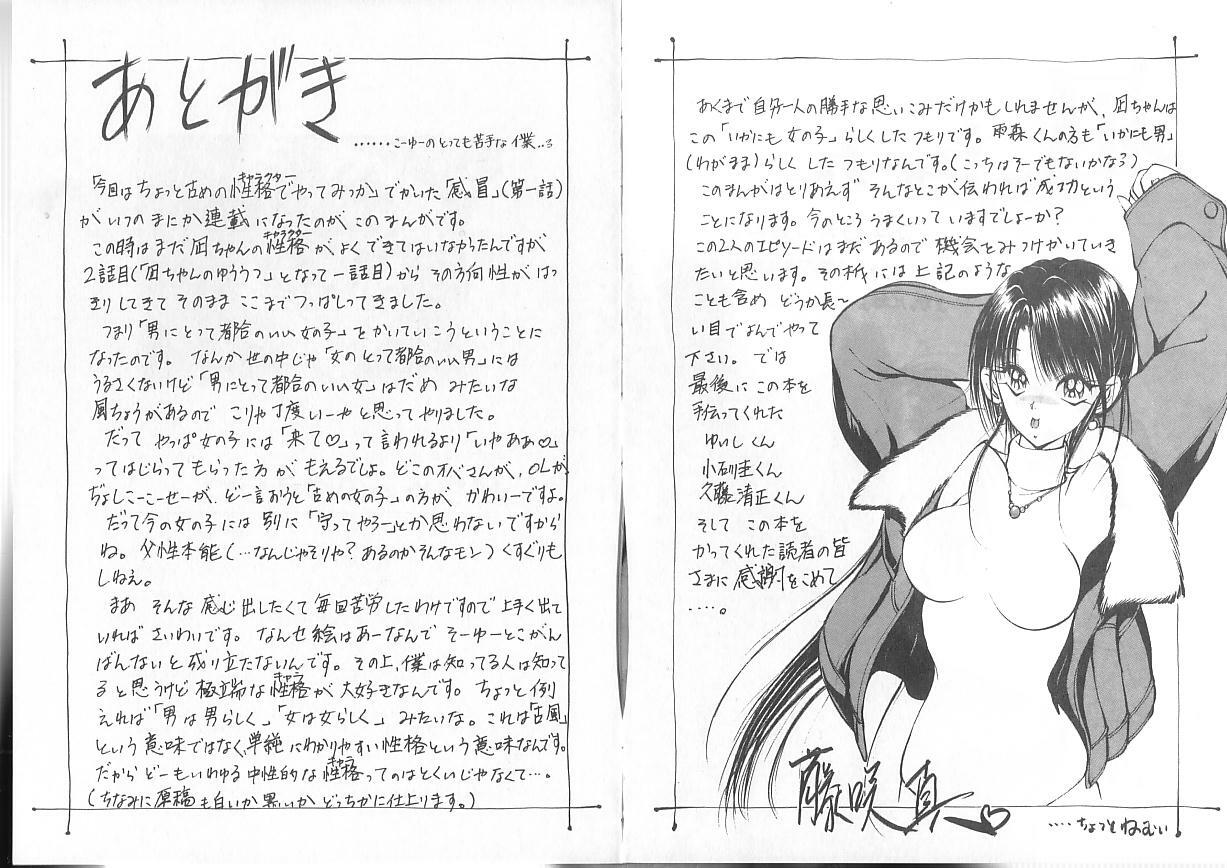 あとがき
……こーゆーのとっても苦手な僕…3
「今回はちょっと古めの性格でやってみっか」でかいた「感冒」(第一話)
キャラクター
がいつのまにか連載になったのが このまんがです。
この時はまだ凪ちゃんの性格が、よくできてはいなかったんですが
キャラクター
2話目(「凪ちゃんのゆううつ」となって一話目)から その方向性がはっ
きりしてきて そのまま ここまでつっぱしってきました。
つまり「男にとって都合のいい女の子」をかいていこうということに
なったのです。 なんか世の中じゃ「女のとって都合のいい男」には
うるさくないけど「男にとって都合のいい女」はだめ みたいな
風ちょうがあるので こりゃ丁度いーやと思ってやりました。
だって やっぱ女の子には「来て♡」って言われるより「いやああ♡」
ってはじらってもらった方が もえるでしょ。どこのオバさんが、OLが
ぢょしこーこーせーが、どー言おうと「古めの女の子」の方が かわいーですよ。
だって今の女の子には 別に「守ってやろー」とか思わないですから
ね。父性本能(…なんじゃそりゃ?あるのかそんなモン)くすぐりも
しねえ。
まあ そんな 感じ出したくて毎回苦労したわけですので上手く出て
いれば さいわいです。 なんせ絵はあーなんで そーゆーとこがん
ばんないと成り立たないんです。その上、僕は知ってる人は知って
ると思うけど 極端な性格が 大好きなんです。 ちょっと例
キャラ
えれば「男は男らしく」「女は女らしく」 みたいな。これは「古風」
という意味ではなく、単純にわかりやすい性格という意味なんです。
だから どーもいわゆる中性的な性格ってのはとくいじゃなくて…。
キャラ
(ちなみに原稿も白いか黒いか どっちかに仕上ります。)
あくまで自分一人の勝手な思いこみだけかもしれませんが、凪ちゃんは
この「いかにも女の子」らしくしたつもりです。雨森くんの方も「いかにも男」
(わがまま)らしく したつもりなんです。(こっちはそーでもないかな?)
このまんがはとりあえず そんなとこが伝われば成功という
ことになります。今のところ うまくいって いますでしょーか?
この2人のエピソードはまだ あるので 機会をみつけかいていき
たいと思います。その折には上記のような
ことも含め どうか長~
い目でよんでやって
下さい。 では
最後に この本を
手伝ってくれた
ゆいしくん
小砂圭くん
久藤清正くん
そして この本を
かってくれた読者の皆
さまに 感謝をこめて
・・・・。
藤咲真♡
‥‥ちょっとねむい